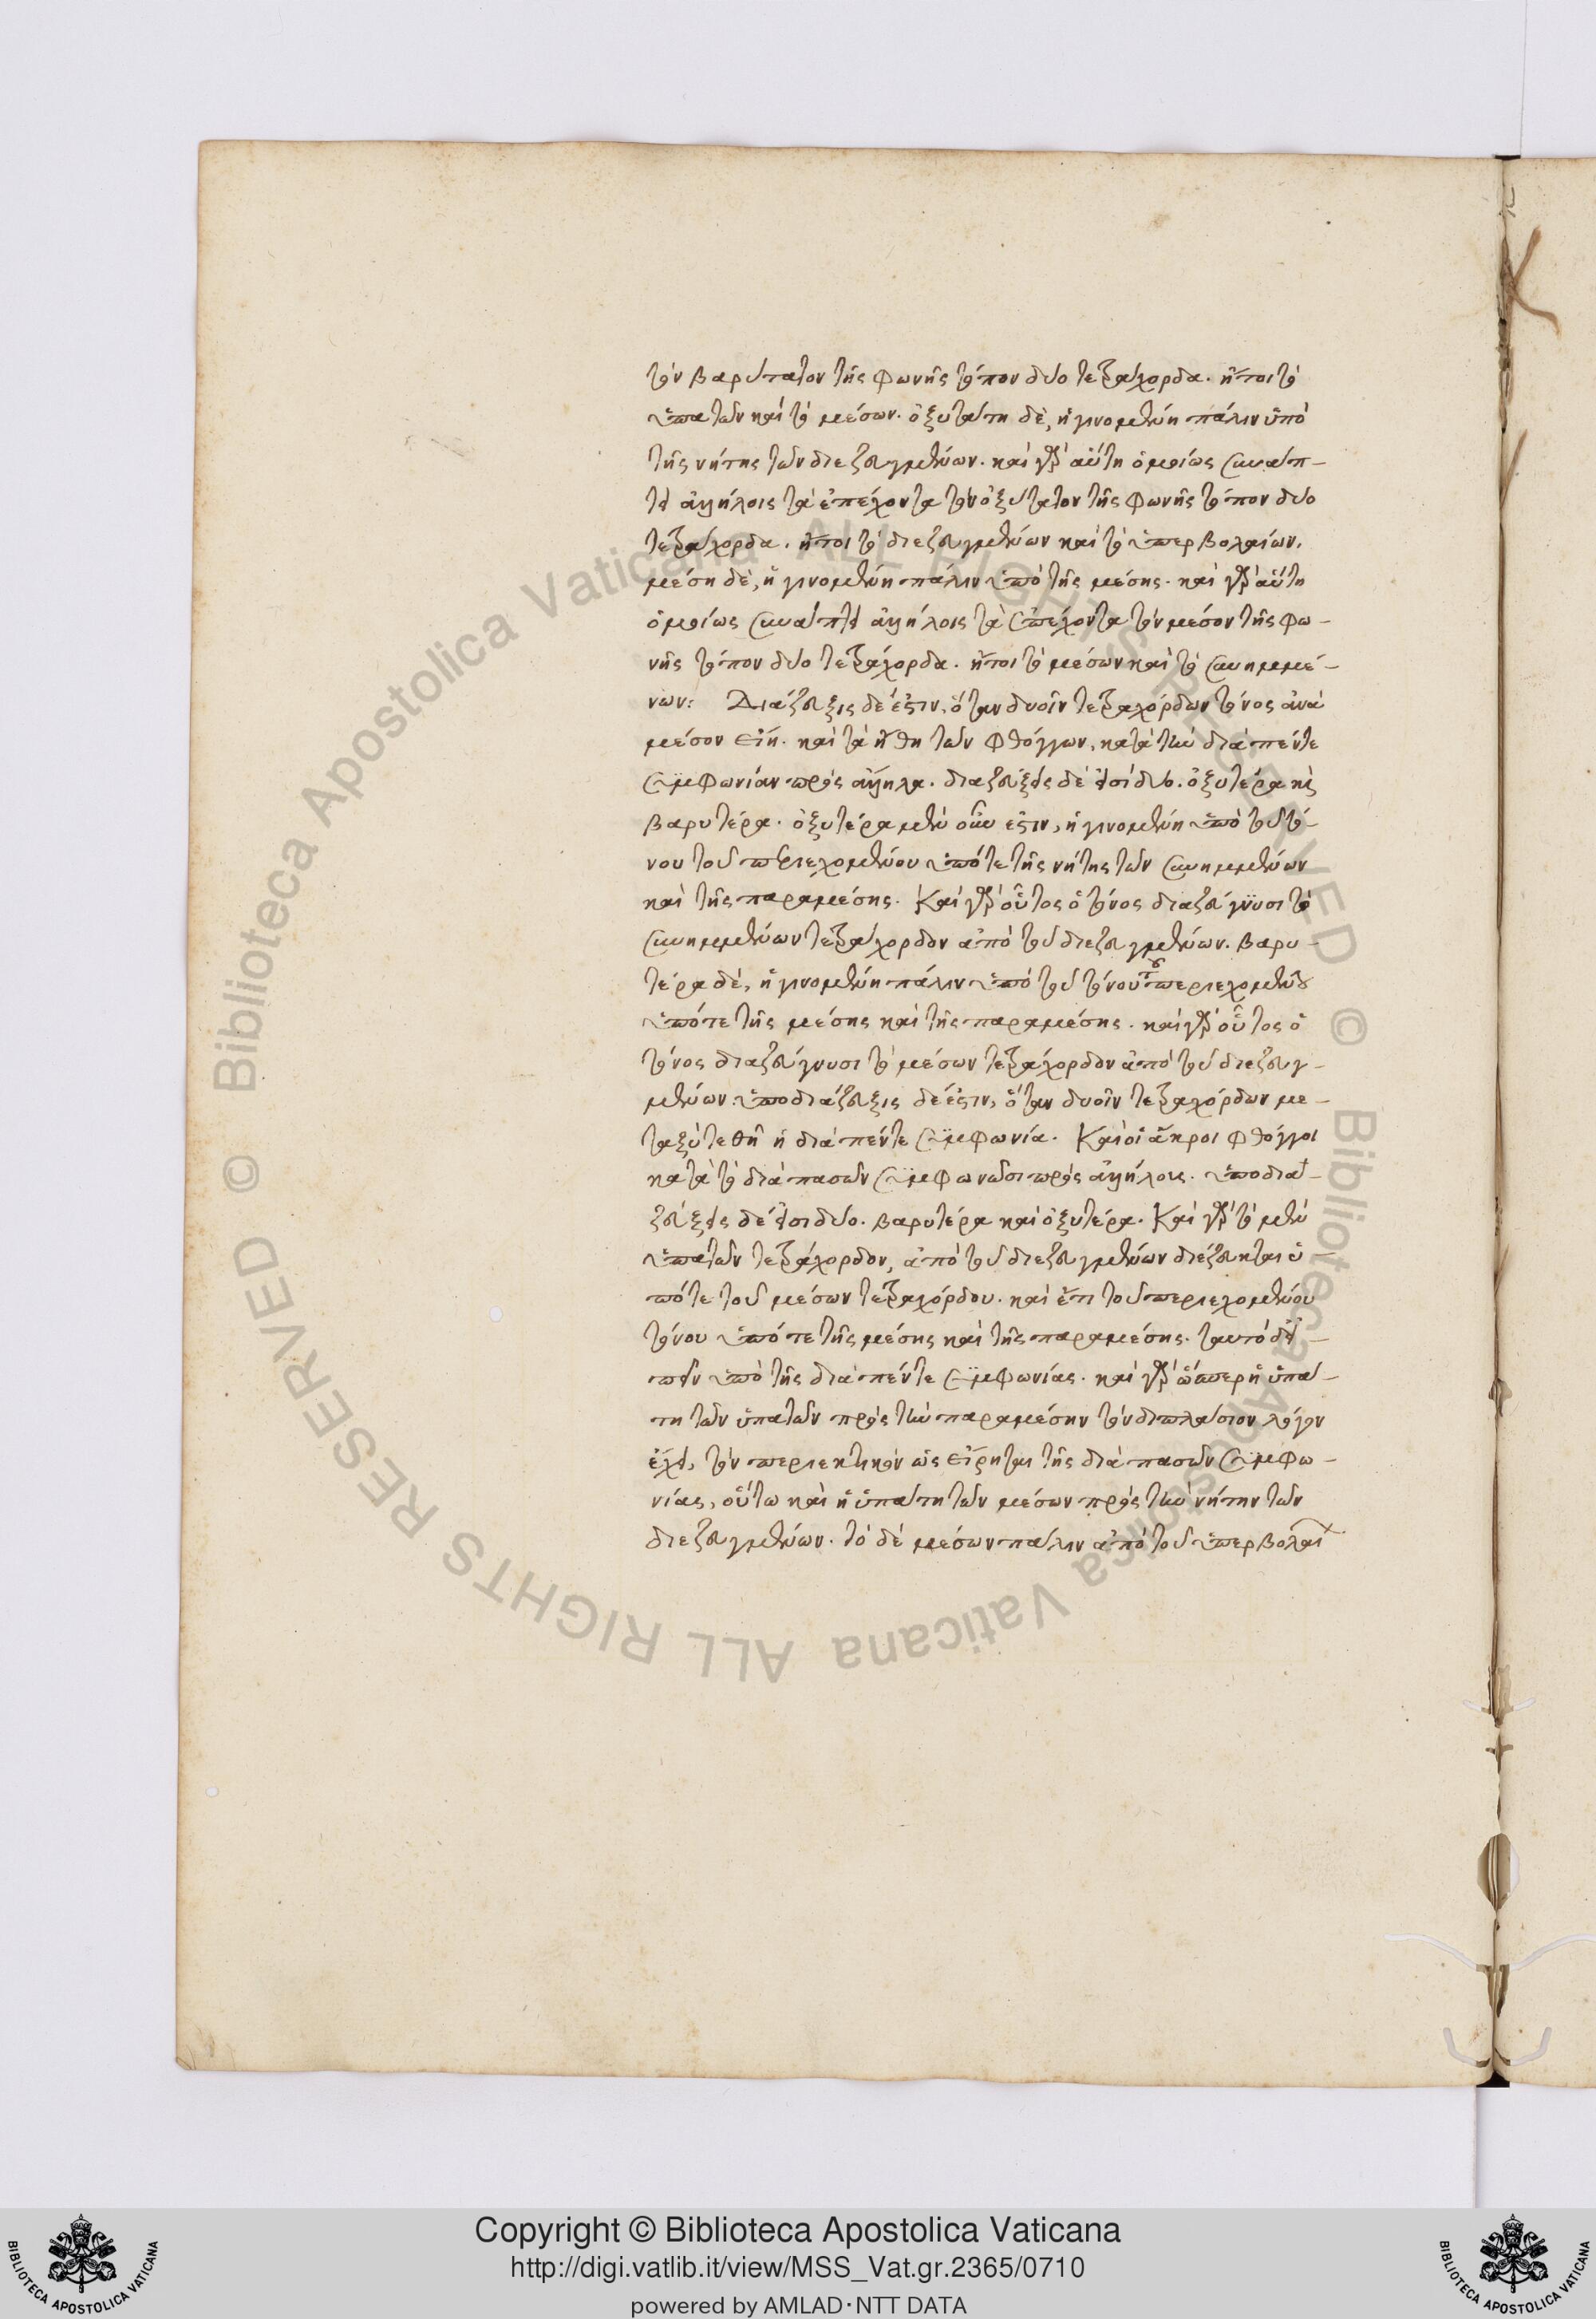 τὸν βαρύτατον τῆς φωνῆς τόπον δύο τετράχορδα. ἤτοι τὸ
ὑπατῶν καὶ τὸ μέσων. ὀξυτάτη δὲ, ἡ γινομένη πάλιν ὑπὸ
τῆς νήτης τῶν διεζευγμένων. καὶ γὰρ αὕτη ὁμοίως συνάπ-
τει ἀλλήλοις τὰ ἐπέχοντα τὸν ὀξύτατον τῆς φωνῆς τόπον δύο
τετράχορδα. ἤτοι τὸ διεζευγμένων καὶ τὸ ὑπερβολαίων.
μέση δὲ, ἡ γινομένη πάλιν ὑπὸ τῆς μέσης. καὶ γὰρ αὕτη
ὁμοίως συνάπτει ἀλλήλοις τὰ ἐπέχοντα τὸν μέσον τῆς φω-
νῆς τόπον δύο τετράχορδα. ἤτοι τὸ μέσων καὶ τὸ συνημμέ-
νων: Διάζευξις δέ ἐστιν, ὅταν δυοῖν τετραχόρδων τόνος ἀνὰ
μέσον εἴη. καὶ τὰ ἤθη τῶν φθόγγων, κατὰ τὴν διὰ πέντε
συμφωνίαν πρὸς ἄλληλα. διαζεύξεις δέ εἰσι δύο. ὀξυτέρα καὶ
βαρυτέρα. ὀξυτέρα μὲν οὖν ἐστιν, ἡ γινομένη ὑπὸ τοῦ τό-
νου τοῦ περιεχομένου ὑπό τε τῆς νήτης τῶν συνημμένων
καὶ τῆς παραμέσης. Καὶ γὰρ οὗτος ὁ τόνος διαζεύγνυσι τὸ
συνημμένων τετράχορδον ἀπὸ τοῦ διεζευγμένων. βαρυ-
τέρα δὲ, ἡ γινομένη πάλιν ὑπὸ τοῦ τόνου τοῦ περιεχομένου
ὑπό τε τῆς μέσης καὶ τῆς παραμέσης. καὶ γὰρ οὗτος ὁ
τόνος διαζεύγνυσι τὸ μέσων τετράχορδον ἀπὸ τοῦ διεζευγ-
μένων: ὑποδιάζευξις δέ ἐστιν, ὅταν δυοῖν τετραχόρδων με-
ταξὺ τεθῇ ἡ διὰ πέντε συμφωνία. Καὶ οἱ ἄκροι φθόγγοι
κατὰ τὸ διὰ πασῶν συμφωνῶσι πρὸς ἀλλήλους. ὑποδια-
ζεύξεις δέ εἰσι δύο. βαρυτέρα καὶ ὀξυτέρα. Καὶ γὰρ τὸ μὲν
ὑπατῶν τετράχορδον, ἀπὸ τοῦ διεζευγμένων διέζευκται ὑ
πό τε τοῦ μέσων τετραχόρδου. καὶ ἔτι τοῦ περιεχομένου
τόνου ὑπό τε τῆς μέσης καὶ τῆς παραμέσης. ταυτὸ δ' εἰ-
πεῖν ὑπὸ τῆς διὰ πέντε συμφωνίας. καὶ γὰρ ὥσπερ ἡ ὑπά-
τη τῶν ὑπατῶν πρὸς τὴν παραμέσην τὸν διπλάσιον λόγον
ἔχει, τὸν περιεκτικὸν ὡς εἴρηται τῆς διὰ πασῶν συμφω-
νίας, οὕτω καὶ ἡ ὑπάτη τῶν μέσων πρὸς τὴν νήτην τῶν
διεζευγμένων. τὸ δὲ μέσων πάλιν ἀπὸ τοῦ ὑπερβολαί
© Biblioteca Apostolica Vaticana ALL RIGHTS RESERVED © Biblioteca Apostolica Vaticana ALL RIGHTS RESERVED
Copyright © Biblioteca Apostolica Vaticana
http://digi.vatlib.it/view/MSS_Vat.gr.2365/0710
powered by AMLAD·NTT DATA
BIBLIOTECA APOSTOLICA VATICANA
BIBLIOTECA APOSTOLICA VATICANA